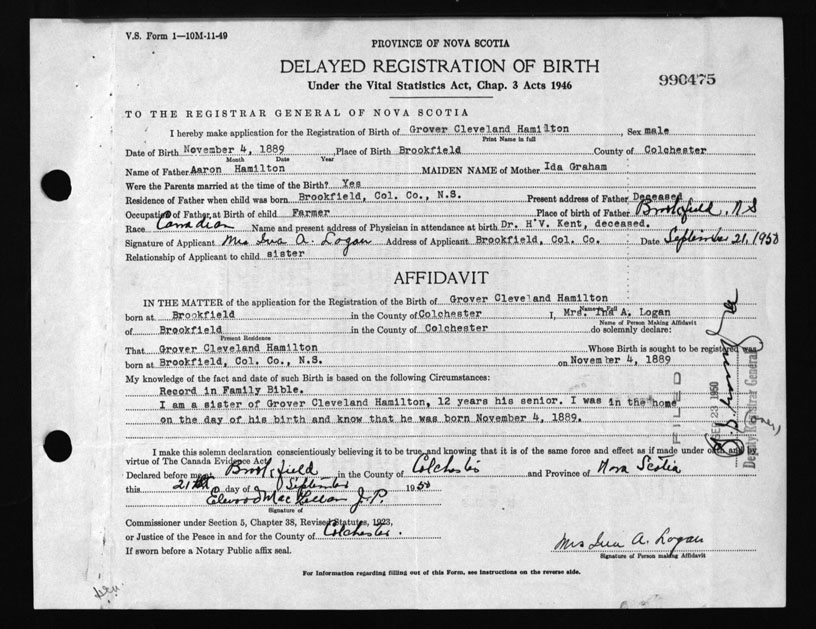 V.S. Form 1—10M-11-49
PROVINCE OF NOVA SCOTIA
DELAYED REGISTRATION OF BIRTH
Under the Vital Statistics Act, Chap. 3 Acts 1946
990475
TO THE REGISTRAR GENERAL OF NOVA SCOTIA
I hereby make application for the Registration of Birth of Grover Cleveland Hamilton, Sex male
Print Name in full
Date of Birth November 4, 1889, Place of Birth Brookfield County of Colchester
Month Date Year
Name of Father Aaron Hamilton MAIDEN NAME of Mother Ida Graham
Were the Parents married at the time of the Birth? Yes
Residence of Father when child was born Brookfield, Col. Co., N.S. Present address of Father Deceased
Occupation of Father at Birth of child Farmer Place of birth of Father Brookfield, N S
Race Canadian Name and present address of Physician in attendance at birth Dr. H V. Kent, deceased.
Signature of Applicant Mrs Ina A. Logan Address of Applicant Brookfield, Col. Co. Date September 21, 1950
Relationship of Applicant to child sister
AFFIDAVIT
IN THE MATTER of the application for the Registration of the Birth of Grover Cleveland Hamilton
Name in Full
born at Brookfield in the County of Colchester I, Mrs. Ina A. Logan
Name of Person Making Affidavit
of Brookfield in the County of Colchester do solemnly declare:
Present Residence
That Grover Cleveland Hamilton Whose Birth is sought to be registered was
born at Brookfield, Col. Co., N.S. on November 4, 1889
My knowledge of the fact and date of such Birth is based on the following Circumstances:
Record in Family Bible.
I am a sister of Grover Cleveland Hamilton, 12 years his senior. I was in the home
on the day of his birth and know that he was born November 4, 1889.
FILED
SEP 23 1950
Deputy Registrar General
I make this solemn declaration conscientiously believing it to be true and knowing that it is of the same force and effect as if made under oath and by
virtue of The Canada Evidence Act.
Declared before me at Brookfield in the County of Colchester and Province of Nova Scotia
this 21st day of September 1950
Elwood MacLellan J.P.
Signature of
Commissioner under Section 5, Chapter 38, Revised Statutes, 1923,
or Justice of the Peace in and for the County of Colchester.
If sworn before a Notary Public affix seal.
Mrs Ina A. Logan
Signature of Person making Affidavit
For Information regarding filling out of this Form, see instructions on the reverse side.